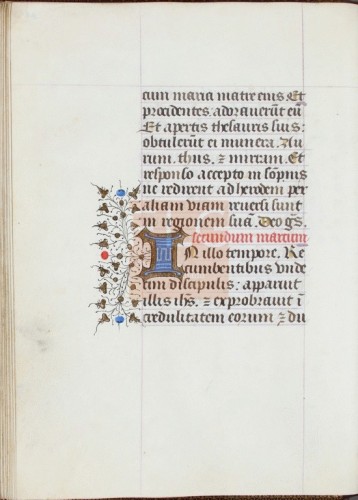 cum maria matre eius. Et
procidentes. adorauerūt eū
Et apertis thesauris suis:
obtulerūt ei munera. Au
rum. thus. ⁊ mirram. Et
responso accepto in sōpnis
ne redirent ad herodem per
aliam viam reuersi sunt
in regionem suā. Deo gr̄s.
secundum marcum
IN illo tempore. Re
cumbentibus vnde
cim discipulis: apparuit
illis ih̄s. ⁊ exprobrauit ī
credulitatem eorum ⁊ du